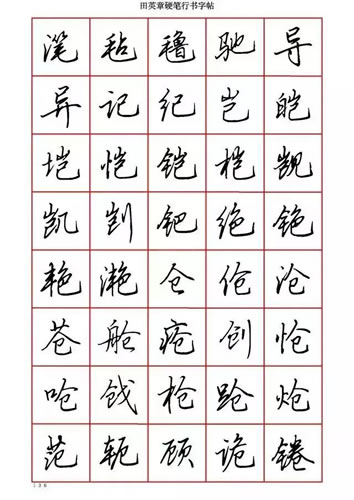 田英章硬笔行书字帖
滗毡氇驰导
异记纪岂皑
垲恺铠桤觊
凯剀钯绝铯
艳滟仓伧沧
苍舱疮创怆
呛戗枪跄炝
范轭顾诡锩